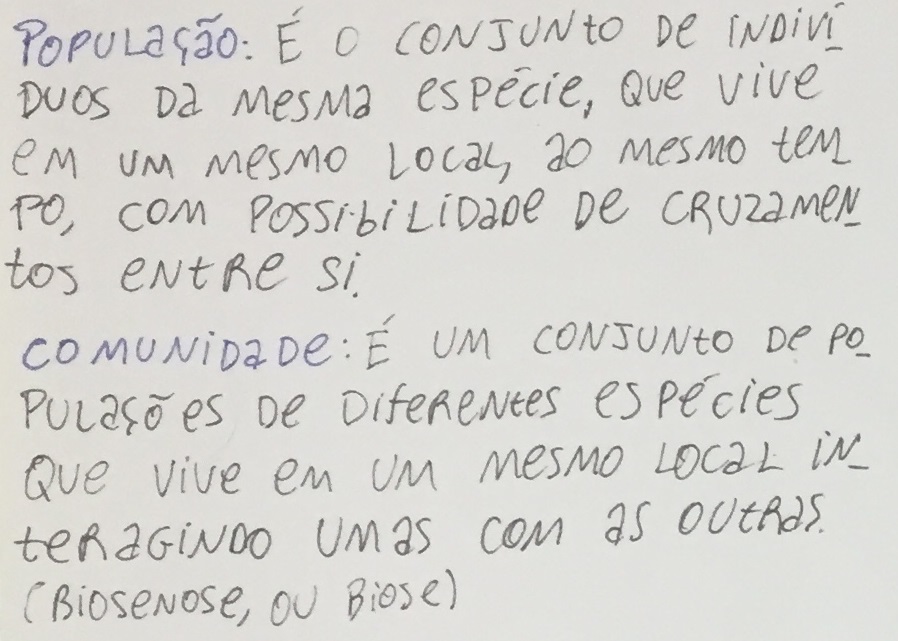 População: É o conjunto de indiví_
duos da mesma espécie, que vive
em um mesmo local, ao mesmo tem_
po, com possibilidade de cruzamen_
tos entre si.
Comunidade: É um conjunto de po_
pulações de diferentes espécies
que vive em um mesmo local in_
teragindo umas com as outras.
(Biosenose, ou Biose)